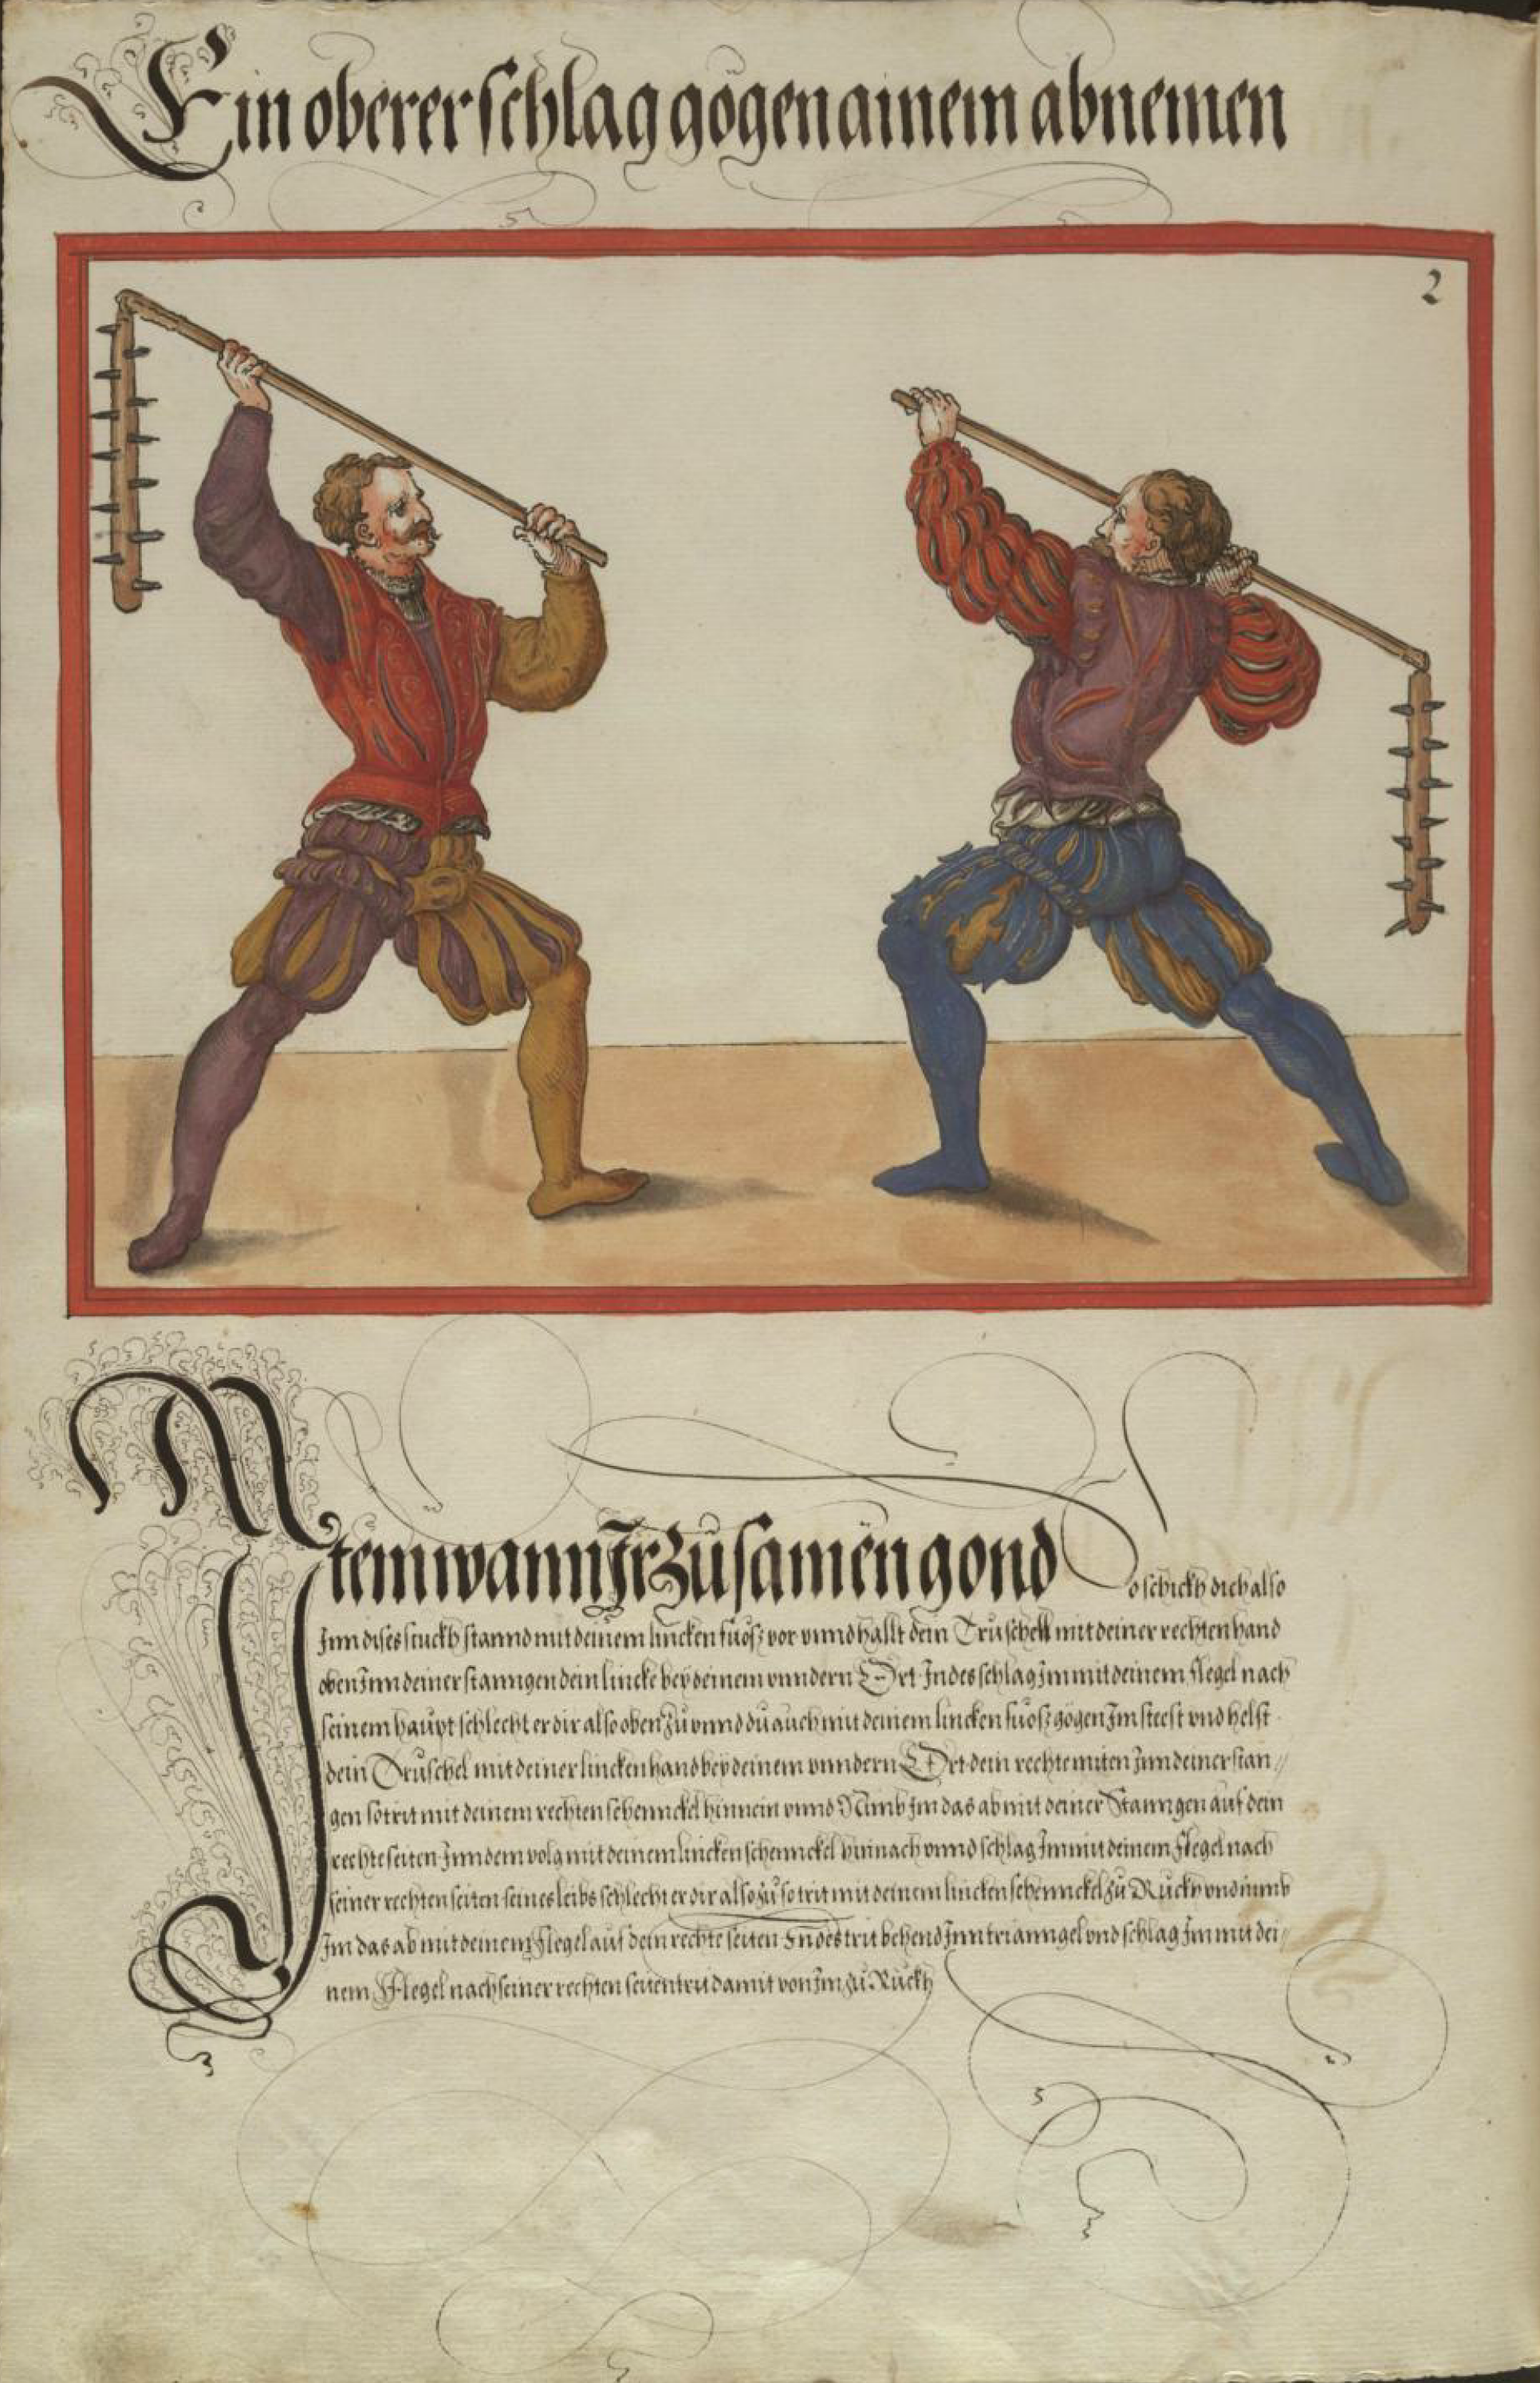 Ein oberer schlag gögen ainem abnemen
2
Item wann Ir zusamen gond so schickh dich also
Inn dises stuckh stannd mit deinem lincken fuos vor vnnd hallt dein Druschell mit deiner rechten hand
oben Inn deiner stanngen dein lincke bey deinem vnndern Ort Indes schlag Im mit deinem flegel nach
seinem haupt schlecht er dir also oben zu vnnd du auch mit deinem lincken fuos gögen Im steest vnd helst
dein Druschel mit deiner lincken hand bey deinem vnndern Ort dein rechte miten Inn deiner stan//
gen so trit mit deinem rechten schennckel hinnein vnnd Nimb Im das ab mit deiner Stanngen auf dein
rechte seiten Inn dem volg mit deinem lincken schennckel hinnach vnnd schlag Im mit deinem Flegel nach
seiner rechten seiten seines leibs schlecht er dir also zu so trit mit deinem lincken schennckel zu Ruckh vnd nimb
Im das ab mit deinem flegel auf dein rechte seiten Indes trit behend Inn trianngel vnd schlag Im mit dei/
nem Flegel nach seiner rechten seiten trit damit von Im zu Ruckh